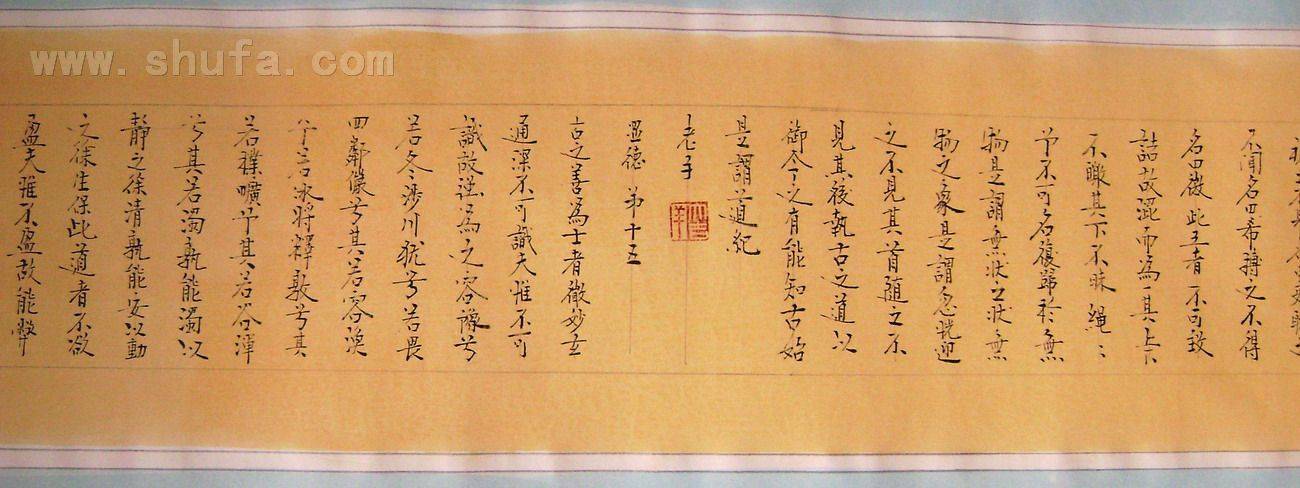 www.shufa.com
不聞名曰希搏之不得
名曰微此三者不可致
詰故混而為一其上下
不皦其下不昧繩〻
兮不可名復歸於無
物是謂無狀之狀無
物之象是謂忽恍迎
之不見其首隨之不
見其後執古之道以
御今之有能知古始
是謂道紀
老子
顯德 第十五
古之善為士者微妙玄
通深不可識夫惟不可
識故強為之容豫兮
若冬涉川猶兮若畏
四鄰儼兮其若容渙
兮若冰將釋敦兮其
若樸曠兮其若谷渾
兮其若濁孰能濁以
靜之徐清孰能安以動
之徐生保此道者不欲
盈夫惟不盈故能弊